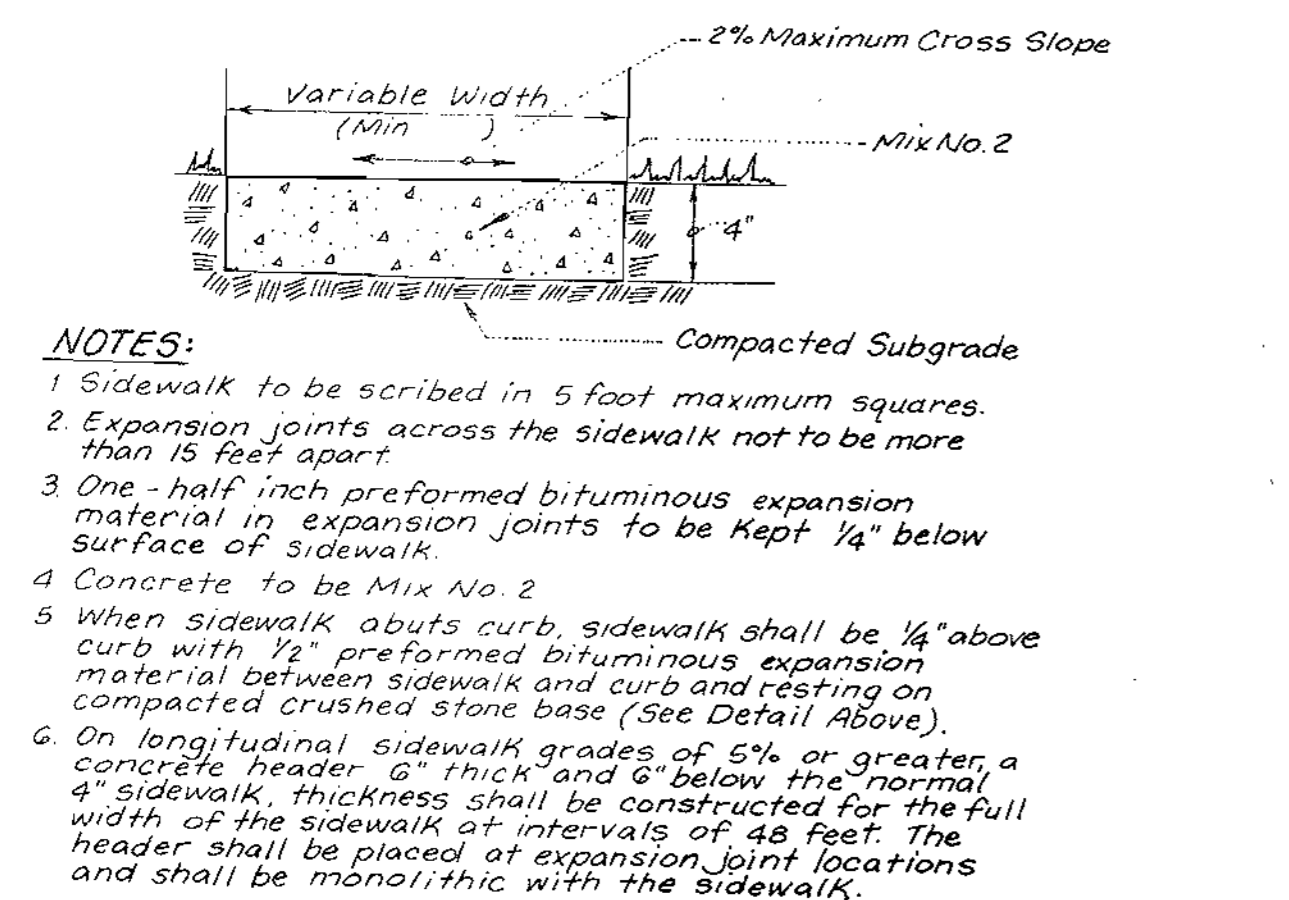 2% Maximum Cross Slope
Variable Width
(Min )
Mix No. 2
4"
Compacted Subgrade
NOTES:
1 Sidewalk to be scribed in 5 foot maximum squares.
2. Expansion joints across the sidewalk not to be more
than 15 feet apart.
3. One-half inch preformed bituminous expansion
material in expansion joints to be Kept 1/4" below
surface of sidewalk.
4 Concrete to be Mix No. 2
5 When sidewalk abuts curb, sidewalk shall be 1/4" above
curb with 1/2" preformed bituminous expansion
material between sidewalk and curb and resting on
compacted crushed stone base (See Detail Above).
6. On longitudinal sidewalk grades of 5% or greater, a
concrete header 6" thick and 6" below the normal
4" sidewalk, thickness shall be constructed for the full
width of the sidewalk at intervals of 48 feet. The
header shall be placed at expansion joint locations
and shall be monolithic with the sidewalk.